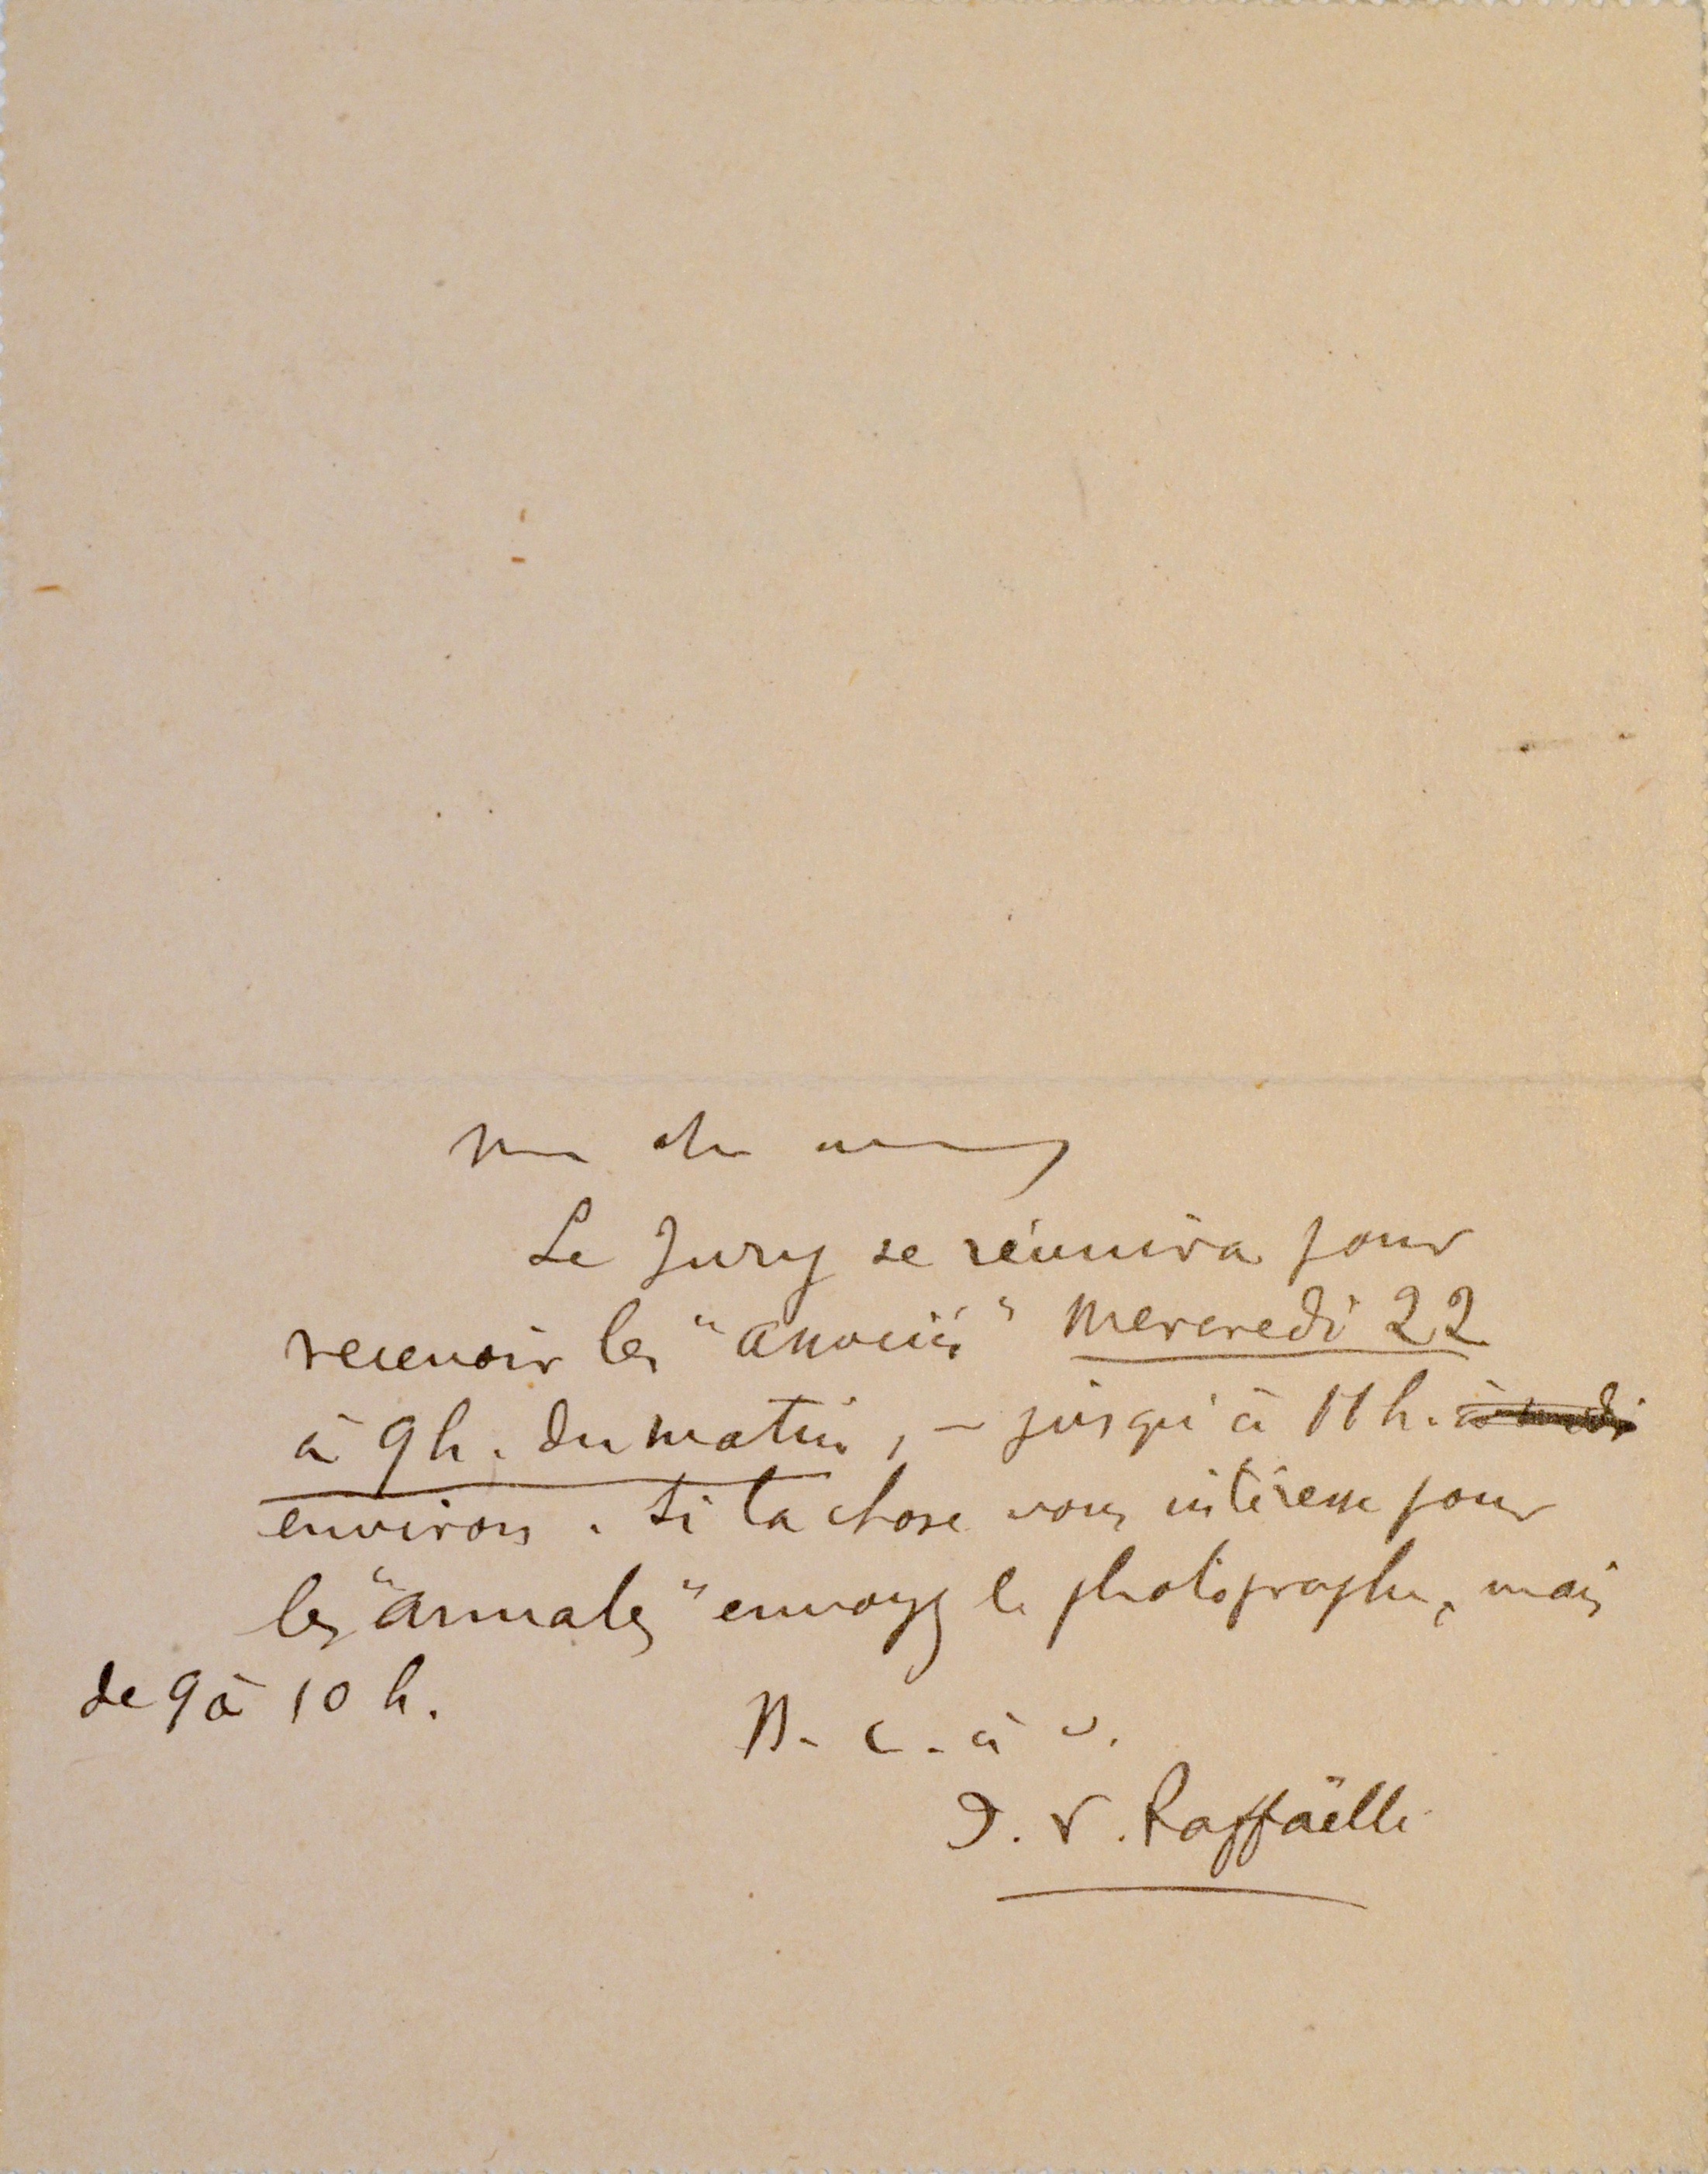 Mon cher ami,
Le Jury se réunira pour
recevoir les "associés" mercredi 22
à 9 h. du matin, – jusqu'à 11 h. à midi
environ. Si la chose vous intéresse pour
les "annales" envoyez le photographe, mais
de 9 à 10 h.
B. c. à v.
J. F. Raffaëlli